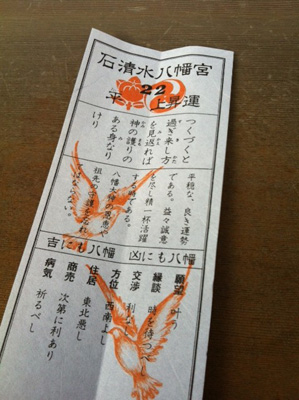 石清水八幡宮
22
平 上昇運
つくづくと
過ぎ来し方
を見返れば
神の護りの
ある身なり
けり
平穏な、良き運勢
である。益々誠意
を尽し精一杯活躍
する時である。
八幡 神の恩恵や
祖先の
はならない。
吉にも八幡 凶にも八幡
願望 叶う
縁談 時を待つべし
交渉 利
方位 西南よし
住居 東北悪し
商売 次第に利あり
病気 祈るべし